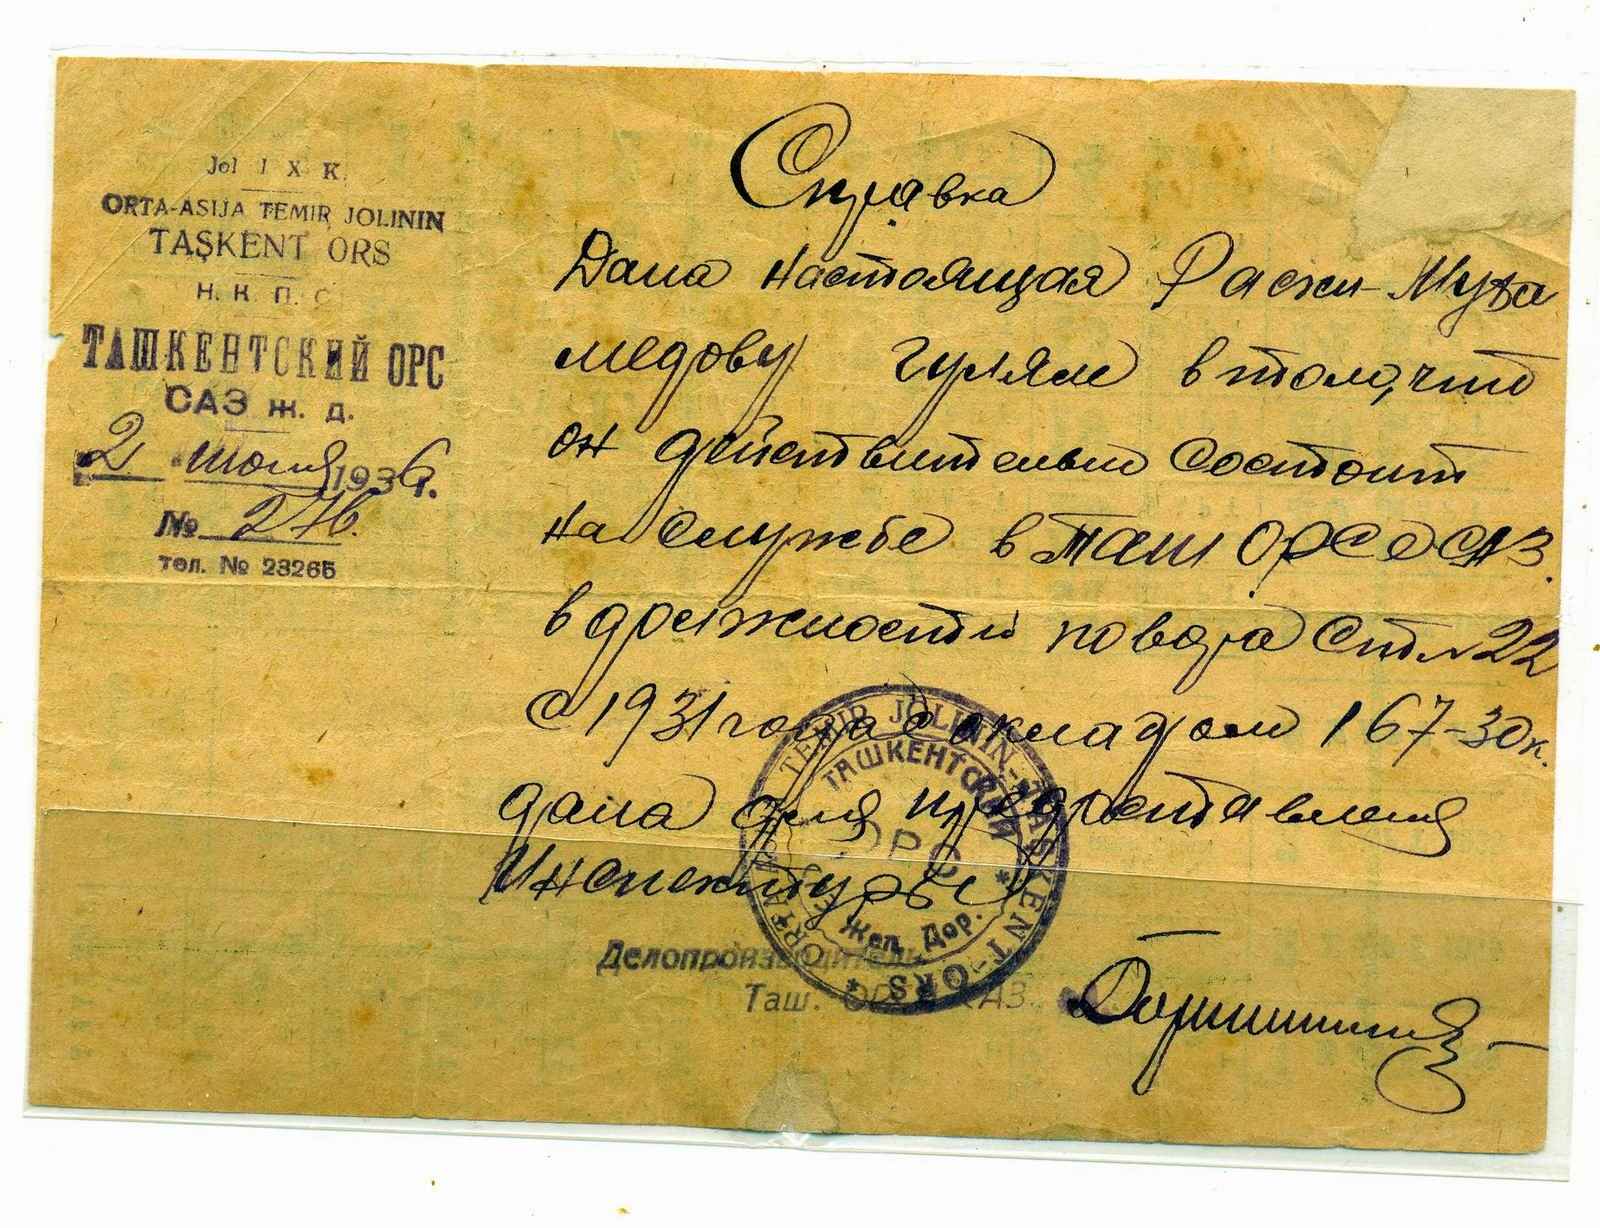 Jol I X K.
ORTA-ASIJA TEMIR JOLININ
TAŞKENT ORS
Н. К. П. С.
ТАШКЕНТСКИЙ ОРС
САЗ ж. д.
2 июня 1936г.
№ 276.
тел. № 23265
Справка
Дана настоящая Муха
медову Гулям в том, что
он действительно состоит
на службе в Таш ОРСе САЗ.
в должности повара Ст. № 22
с 1931 года с окладом 167-30к.
дана для предоставления
Инспектуры
Делопроизводитель
Таш. ОРСА САЗ.
TEMIR JOLININ TAŞKENT-ORS
ТАШКЕНТСКИЙ
ОРС
Жел. Дор.